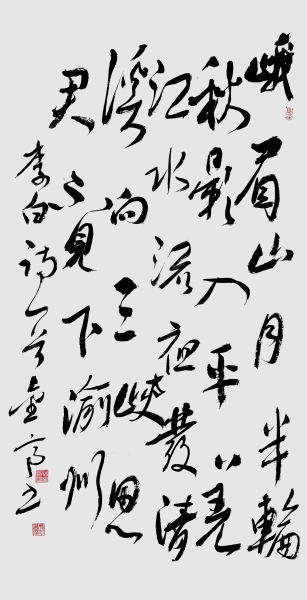 峨眉山月半輪
秋影入平羌
江水流夜發清
溪向三峽思
君不見下渝州
李白詩一首